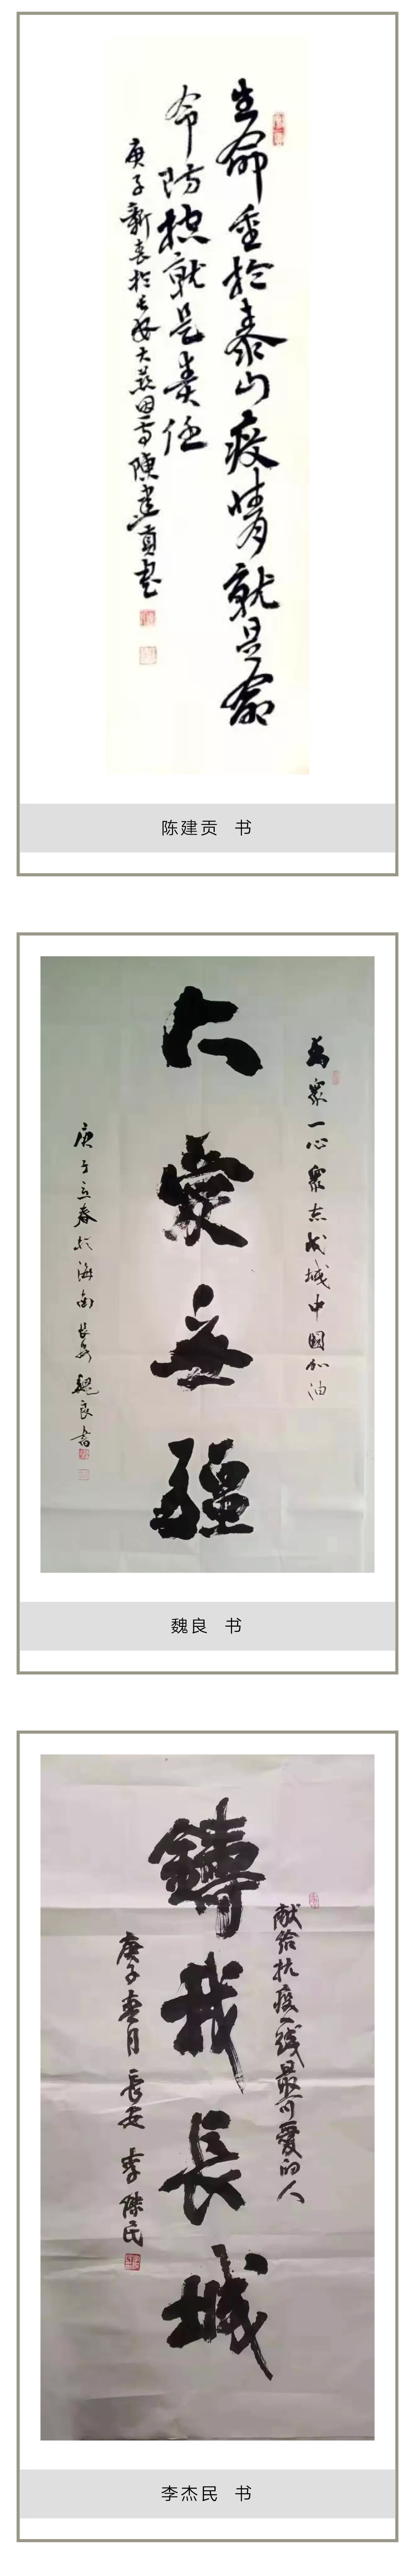 生命重於泰山疫情就是命
令防控就是責任
庚子新春於長安大燕田雪陳建貢書
陈建贡 书
萬眾一心眾志成城中國加油
大愛無疆
庚子立春於海南長安魏良書
魏良 书
献给抗疫一线最可愛的人
鑄我長城
庚子春月長安李傑民
李杰民 书